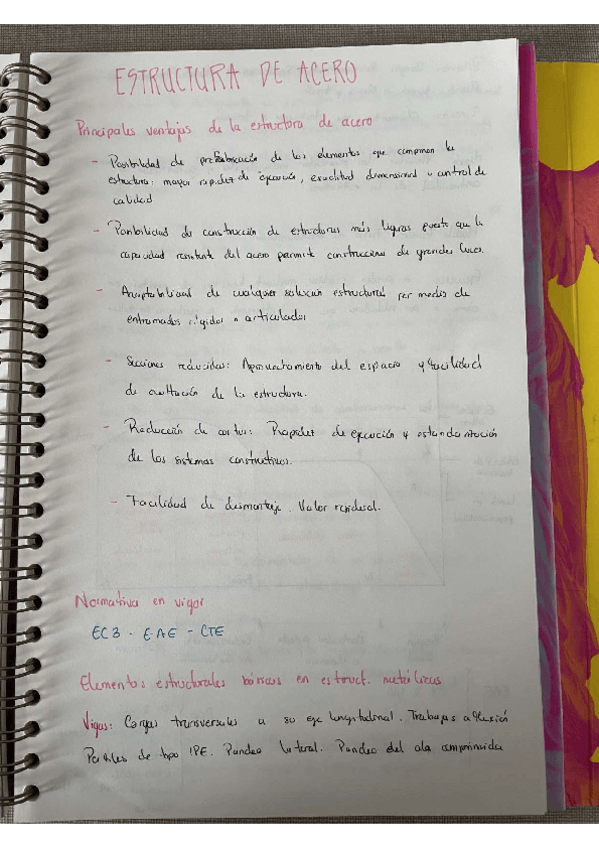 ESTRUCTURA DE ACERO
Principales ventajas de la estructura de acero
- Posibilidad de prefabricación de los elementos que componen la
estructura: mayor rapidez de ejecución, exactitud dimensional y control de
calidad
- Posibilidad de construcción de estructuras más ligeras puesto que la
capacidad resistente del acero permite construcciones de grandes luces.
- Adaptabilidad de cualquier solución estructural por medio de
entramados rígidos o articulados
- Secciones reducidas: Aprovechamiento del espacio y facilidad
de ocultación de la estructura.
- Reducción de costes: Rapidez de ejecución y estandarización
de los sistemas constructivos.
- Facilidad de desmontaje. Valor residual.
Normativa en vigor
EC3 - EAE - CTE
Elementos estructurales básicos en estruct. metálicas
Vigas: Cargas transversales a su eje longitudinal. Trabajas a flexión
Perfiles de tipo IPE. Pandeo lateral. Pandeo del ala comprimida